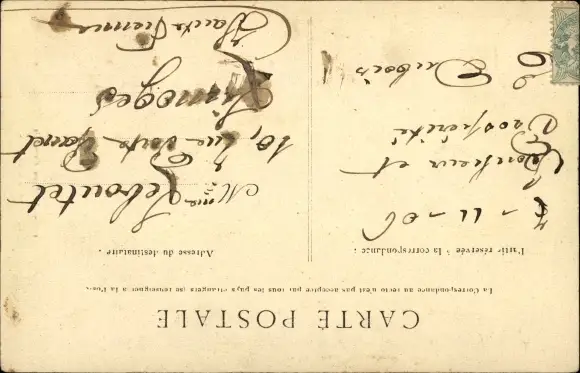 CARTE POSTALE
La Correspondance au recto n'est pas acceptée par tous les pays étrangers (se renseigner à la Poste
Partie réservée à la correspondance :
7-11-06
Bonheur et
Prospérité
E Dubois
Adresse du destinataire.
Mme Leboutet
10, Rue Porte Panet
Limoges
Haute Vienne